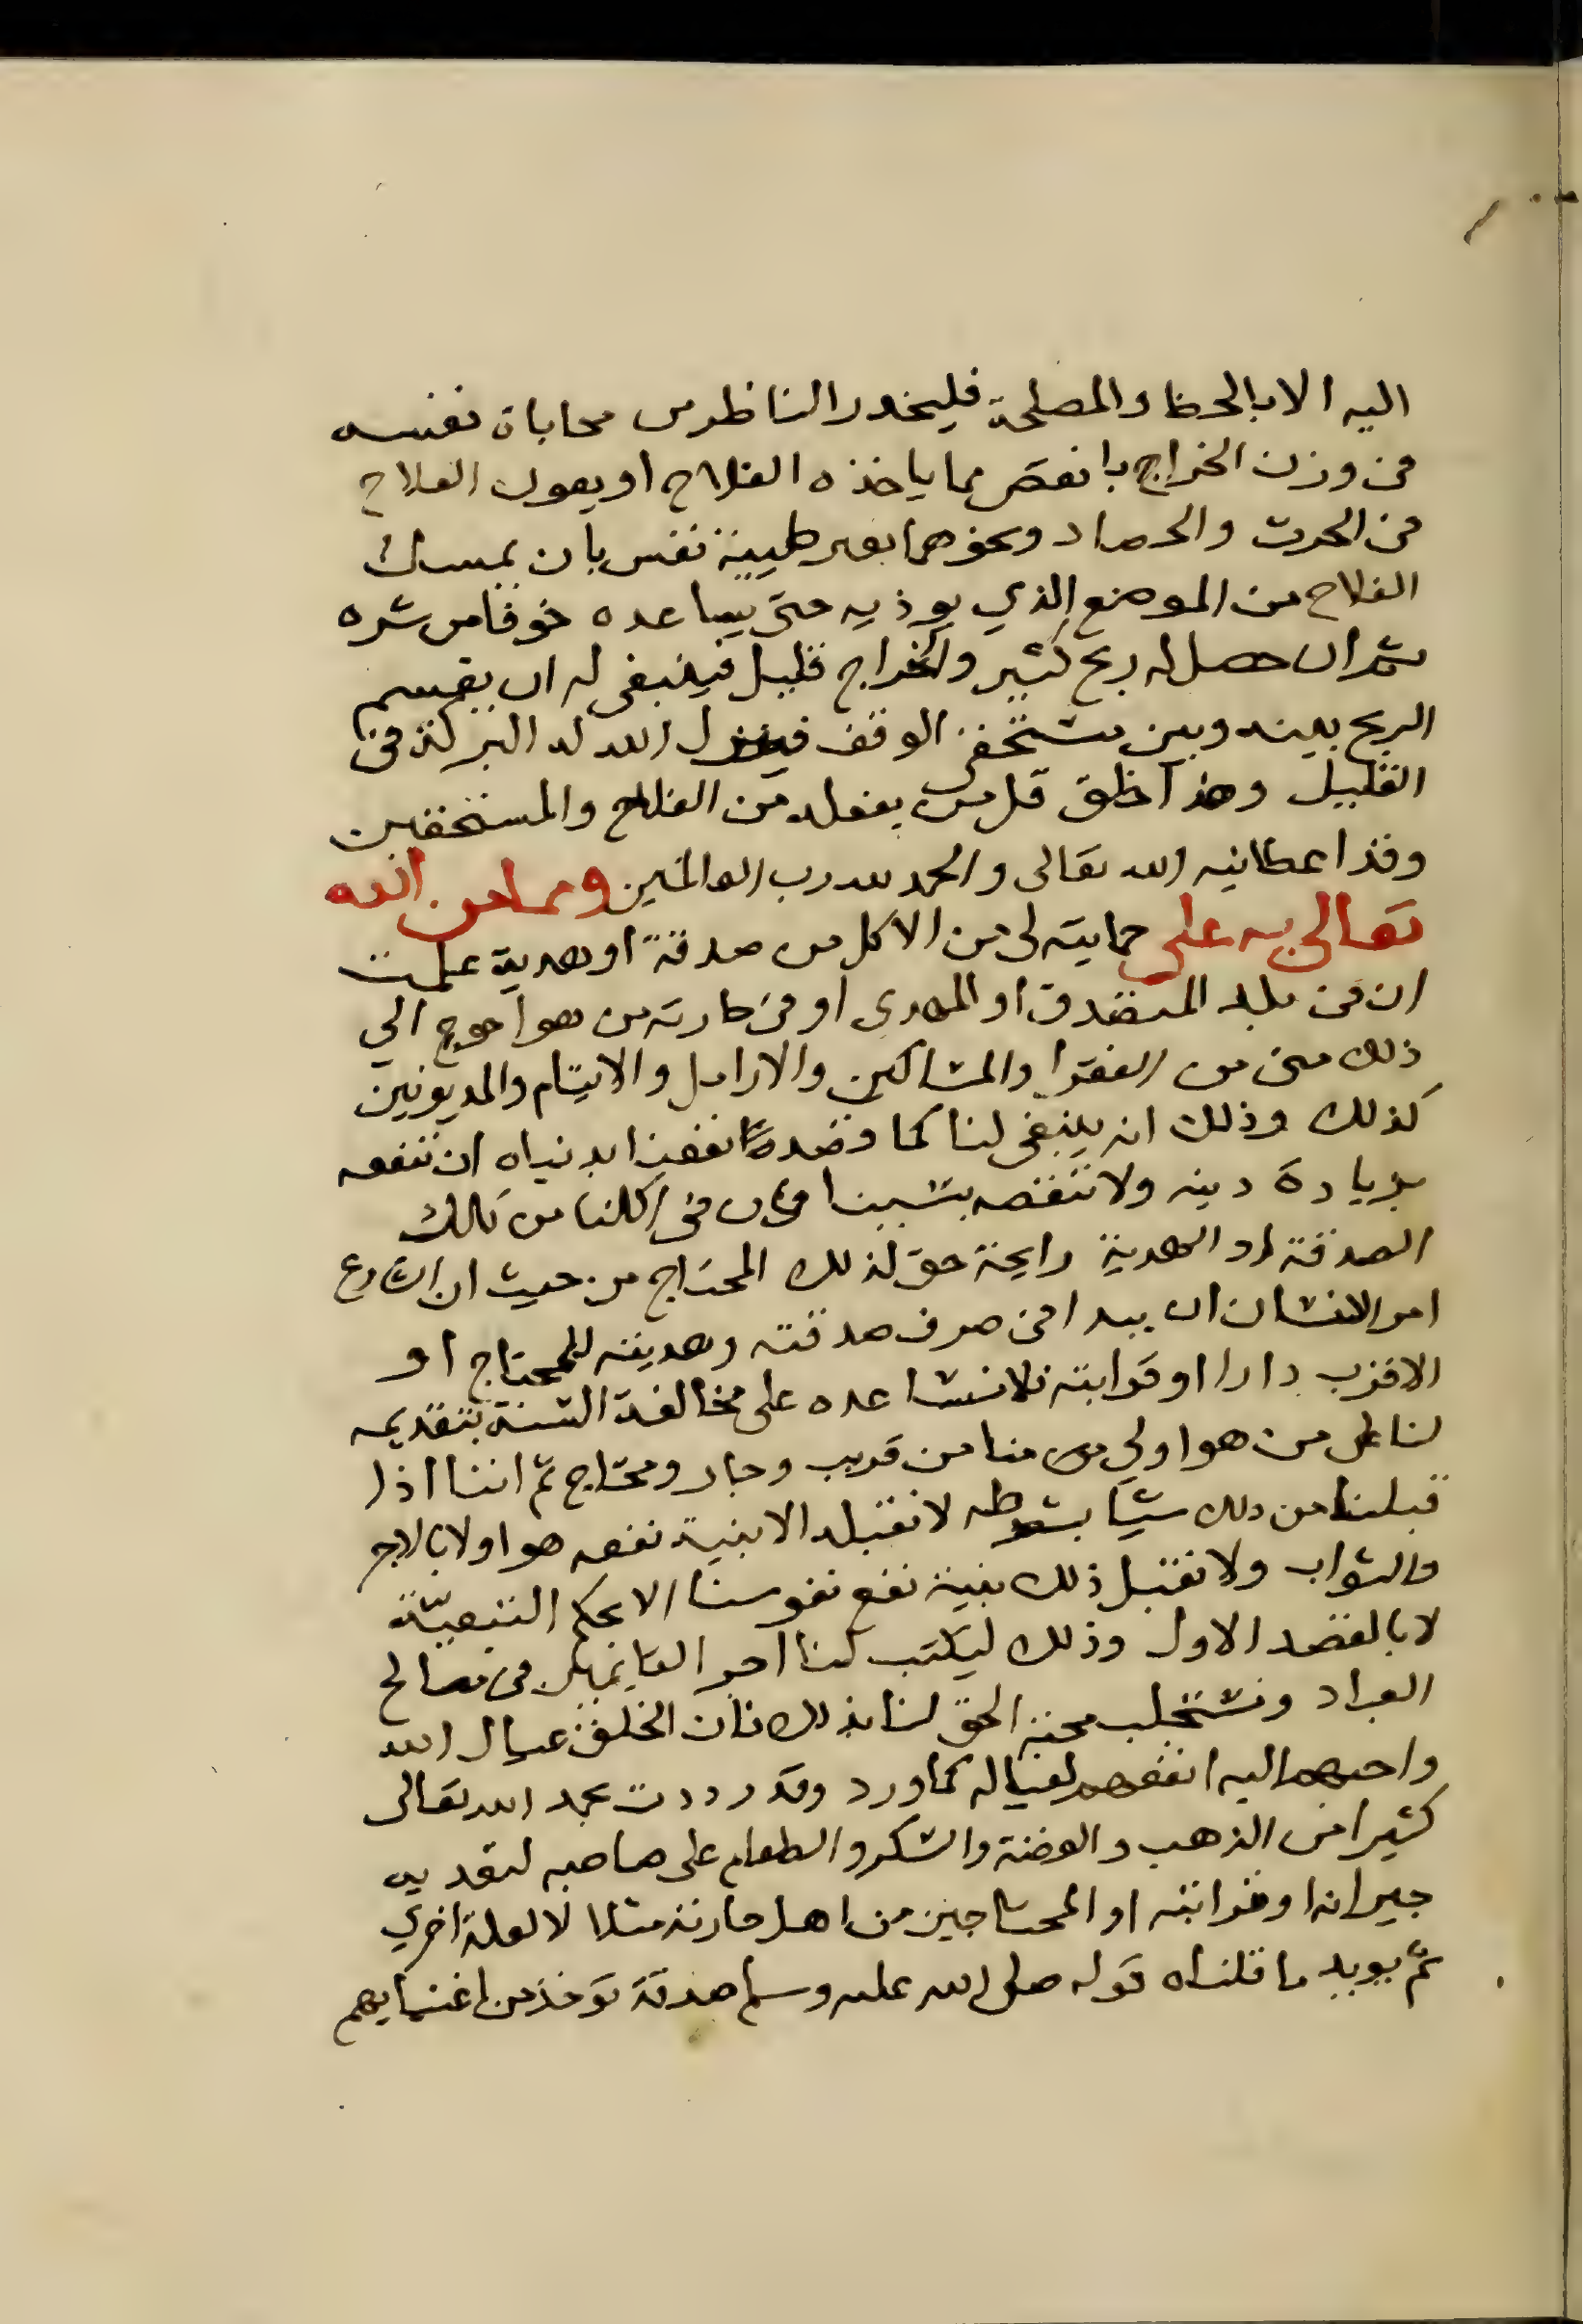 اليه الا بالحظ والمصلحة فليحذر الناظر من محابات نفسه
في وزن الخراج بانقص مما ياخذه الفلاح او يعول الفلاح
في الحرث والحصاد ونحوهما بغير طيبة نفس بان يمسك
الفلاح من الموضع الذي يوذيه حتى يساعده خوفا من شره
ثم ان حصل له ربح كثير والخراج قليل فينبغي له ان يقسم
الربح بينه وبين مستحقي الوقف فينزل الله له البركة في
القليل وهذا خلق قل من يفعله من الفلاح والمستحقين
وقد اعطانيه الله تعالى والحمد لله رب العالمين ومما من الله
تعالى به علي حمايته لي من الاكل من صدقة او هدية علمت
ان في بلد المتصدق او المهدى او في حارته من هو احوج الي
ذلك مني من الفقرا والمساكين والارامل والايتام والمديونين
كذلك وذلك انه ينبغي لنا كما قصد نفعنا بدنياه ان ننفعه
بزيادة دينه ولا ننقصه بسببنا فان في اكلنا من تلك
الصدقة او الهدية رايحة حق لذلك المحتاج من حيث ان الشارع
امر الانسان ان يبدا في صرف صدقته وهديته للمحتاج او
الاقرب دارا او قرابته فلا نساعده على مخالفة السنة بتقديمه
لنا على من هو اولي من منا من قريب وجار ومحتاج ثم اننا اذا
قبلنا من ذلك شيا بشرطه لا نقبله الا بنية نفعه هو اولا بالاجر
والثواب ولا نقبل ذلك بنية نفع نفوسنا الا بحكم التبعية
لا بالقصد الاول وذلك ليكتب لنا اجر القايمين في مصالح
العباد ونستجلب محبة الحق لنا بذلك فان الخلق عيال الله
واحبهم اليه انفعهم لعياله كما ورد وقد رددت بحمد الله تعالى
كثيرا من الذهب والفضة والسكر والطعام على صاحبه لتقديمه
جيرانه او قرابته او المحتاجين من اهل حارته مثلا لا لعلة اخري
ثم يويد ما قلناه قوله صلى الله عليه وسلم صدقة توخذ من اغنيايهم